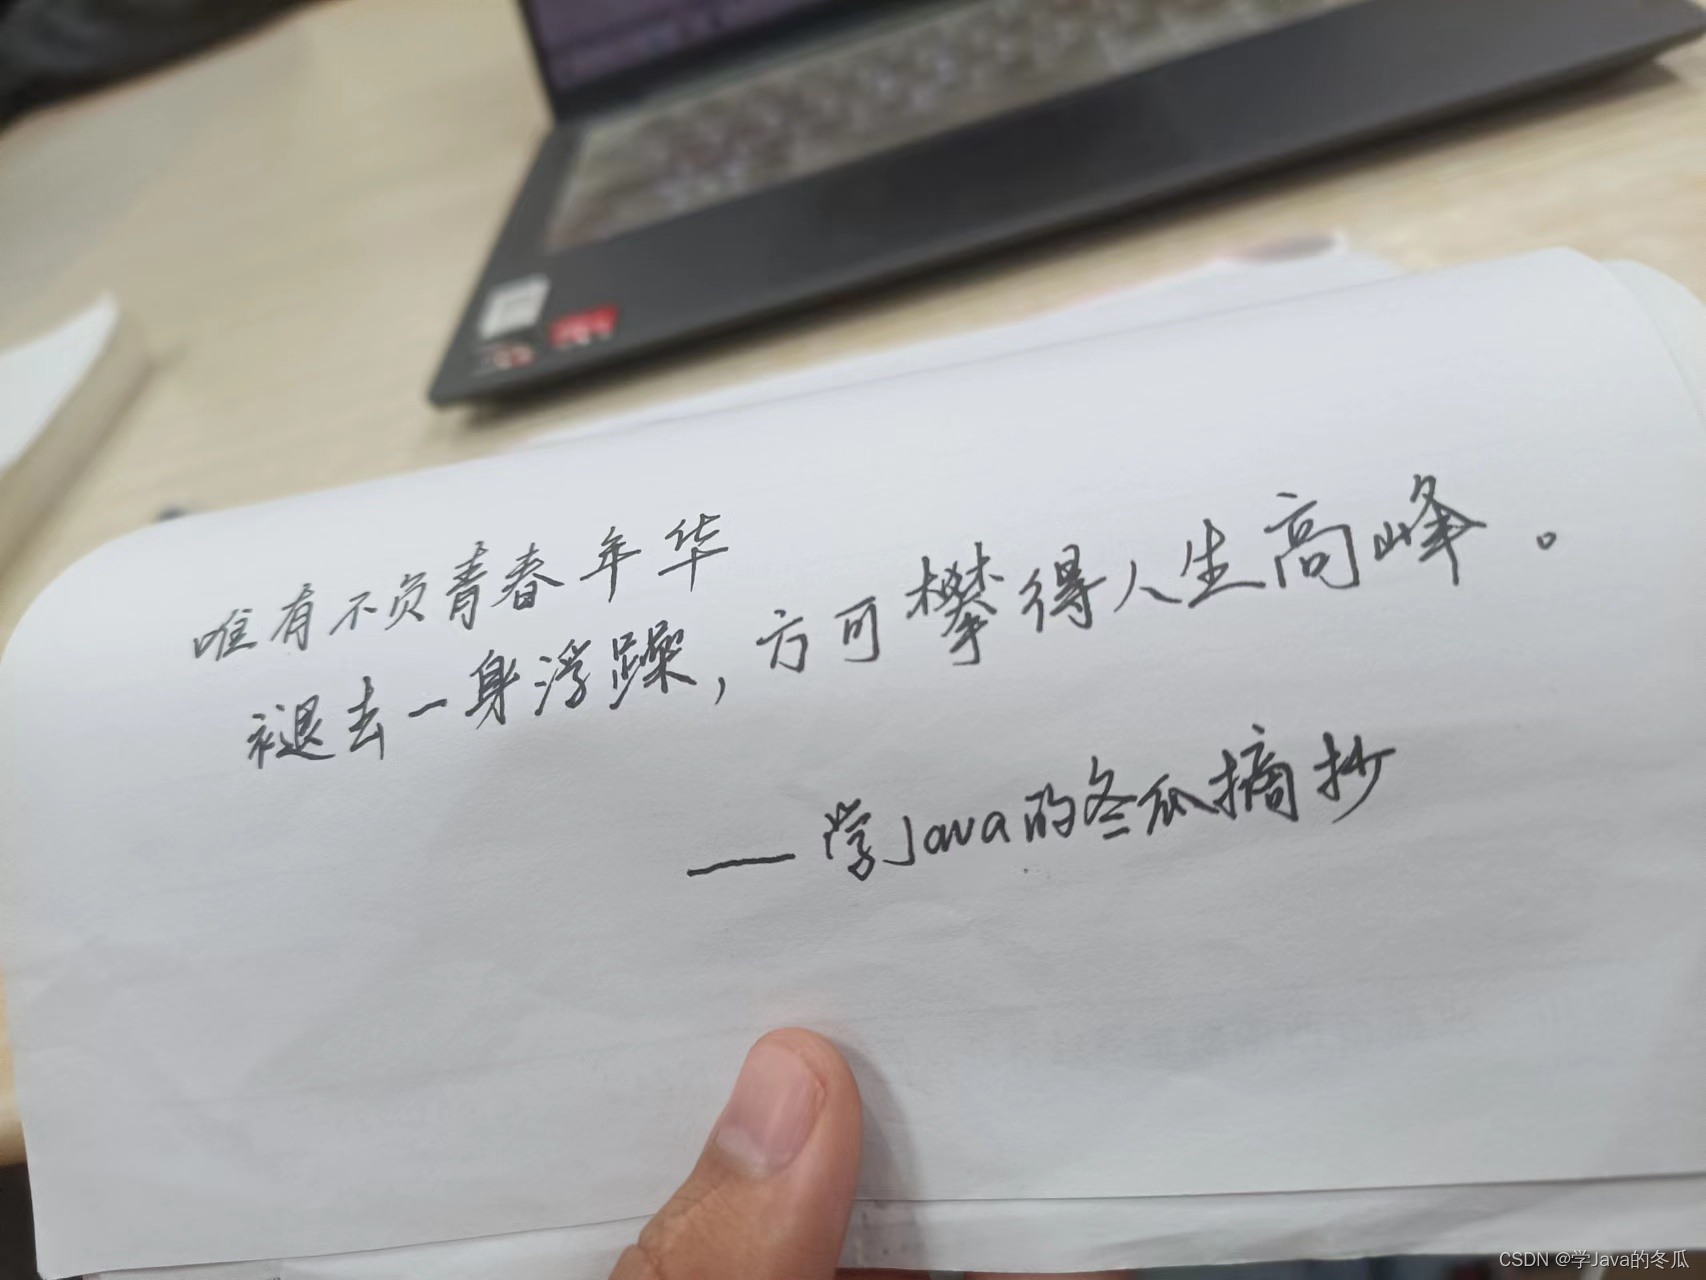 唯有不负青春年华
褪去一身浮躁，方可攀得人生高峰。
——学Java的冬瓜摘抄
CSDN @学Java的冬瓜